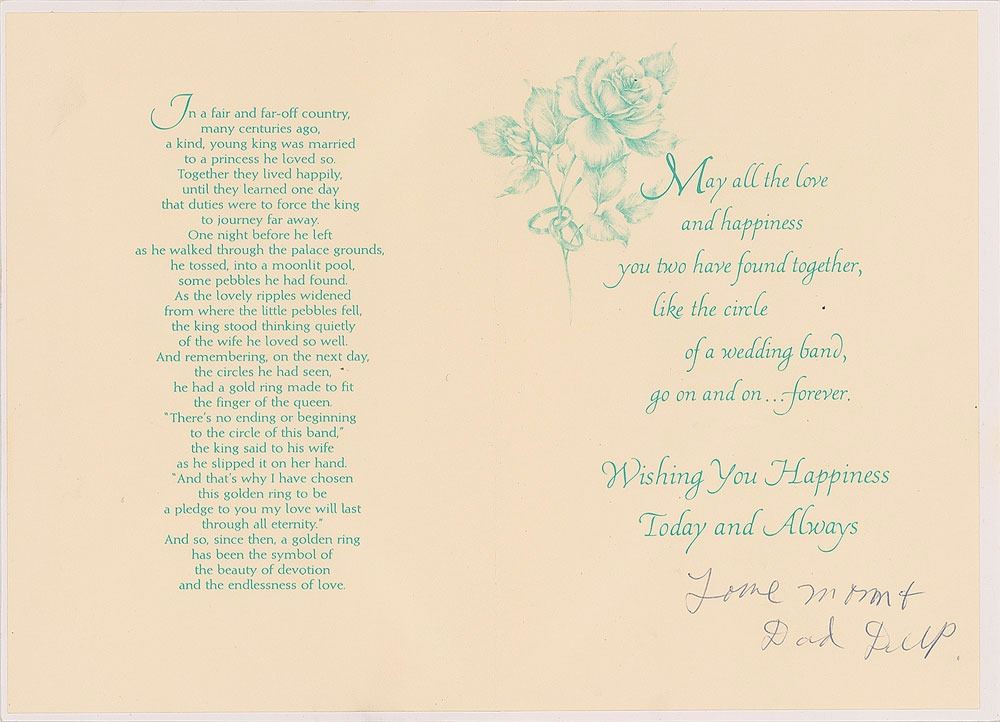 In a fair and far-off country,
many centuries ago,
a kind, young king was married
to a princess he loved so.
Together they lived happily,
until they learned one day
that duties were to force the king
to journey far away.
One night before he left
as he walked through the palace grounds,
he tossed, into a moonlit pool,
some pebbles he had found.
As the lovely ripples widened
from where the little pebbles fell,
the king stood thinking quietly
of the wife he loved so well.
And remembering, on the next day,
the circles he had seen,
he had a gold ring made to fit
the finger of the queen.
"There's no ending or beginning
to the circle of this band,"
the king said to his wife
as he slipped it on her hand.
"And that's why I have chosen
this golden ring to be
a pledge to you my love will last
through all eternity."
And so, since then, a golden ring
has been the symbol of
the beauty of devotion
and the endlessness of love.
May all the love
and happiness
you two have found together,
like the circle
of a wedding band,
go on and on...forever.
Wishing You Happiness
Today and Always
Love mom +
Dad